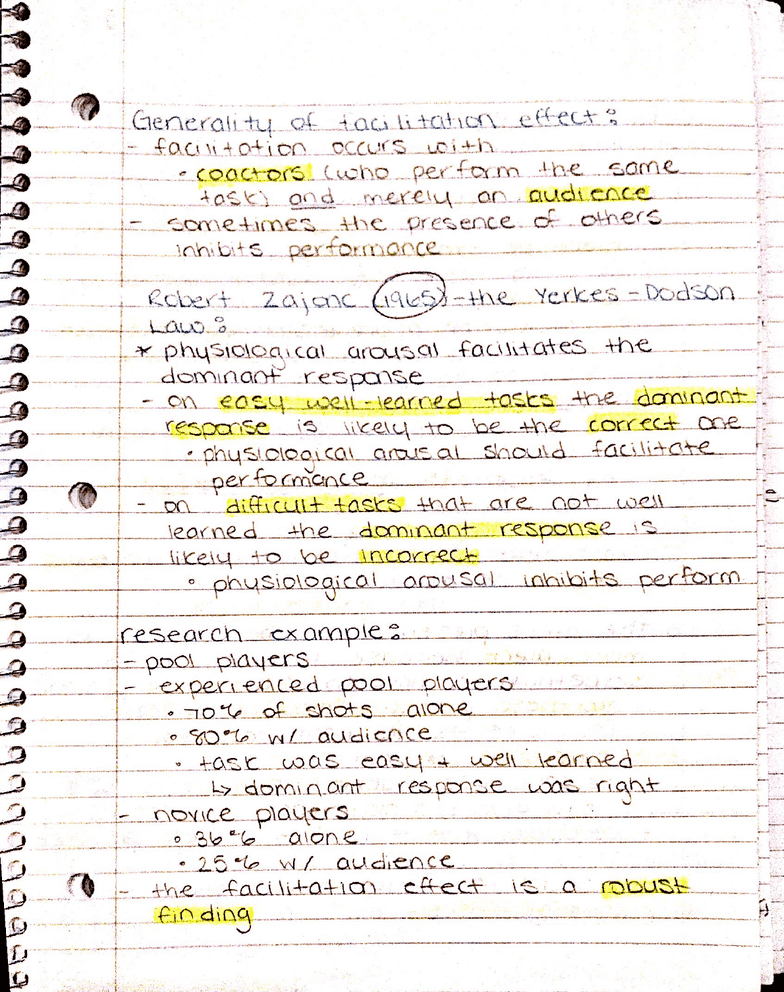 Generality of facilitation effect:
- facilitation occurs with
• coactors (who perform the same
task) and merely an audience
- sometimes the presence of others
inhibits performance
Robert Zajonc (1965) - the Yerkes - Dodson
Law:
* physiological arousal facilitates the
dominant response
- on easy well-learned tasks the dominant
response is likely to be the correct one
• physiological arousal should facilitate
performance
- on difficult tasks that are not well
learned the dominant response is
likely to be incorrect
• physiological arousal inhibits perform
research example:
- pool players
- experienced pool players
• 70% of shots alone
• 80% w/ audience
• task was easy + well learned
↳ dominant response was right
- novice players
• 36% alone
• 25% w/ audience
- the facilitation effect is a robust
finding